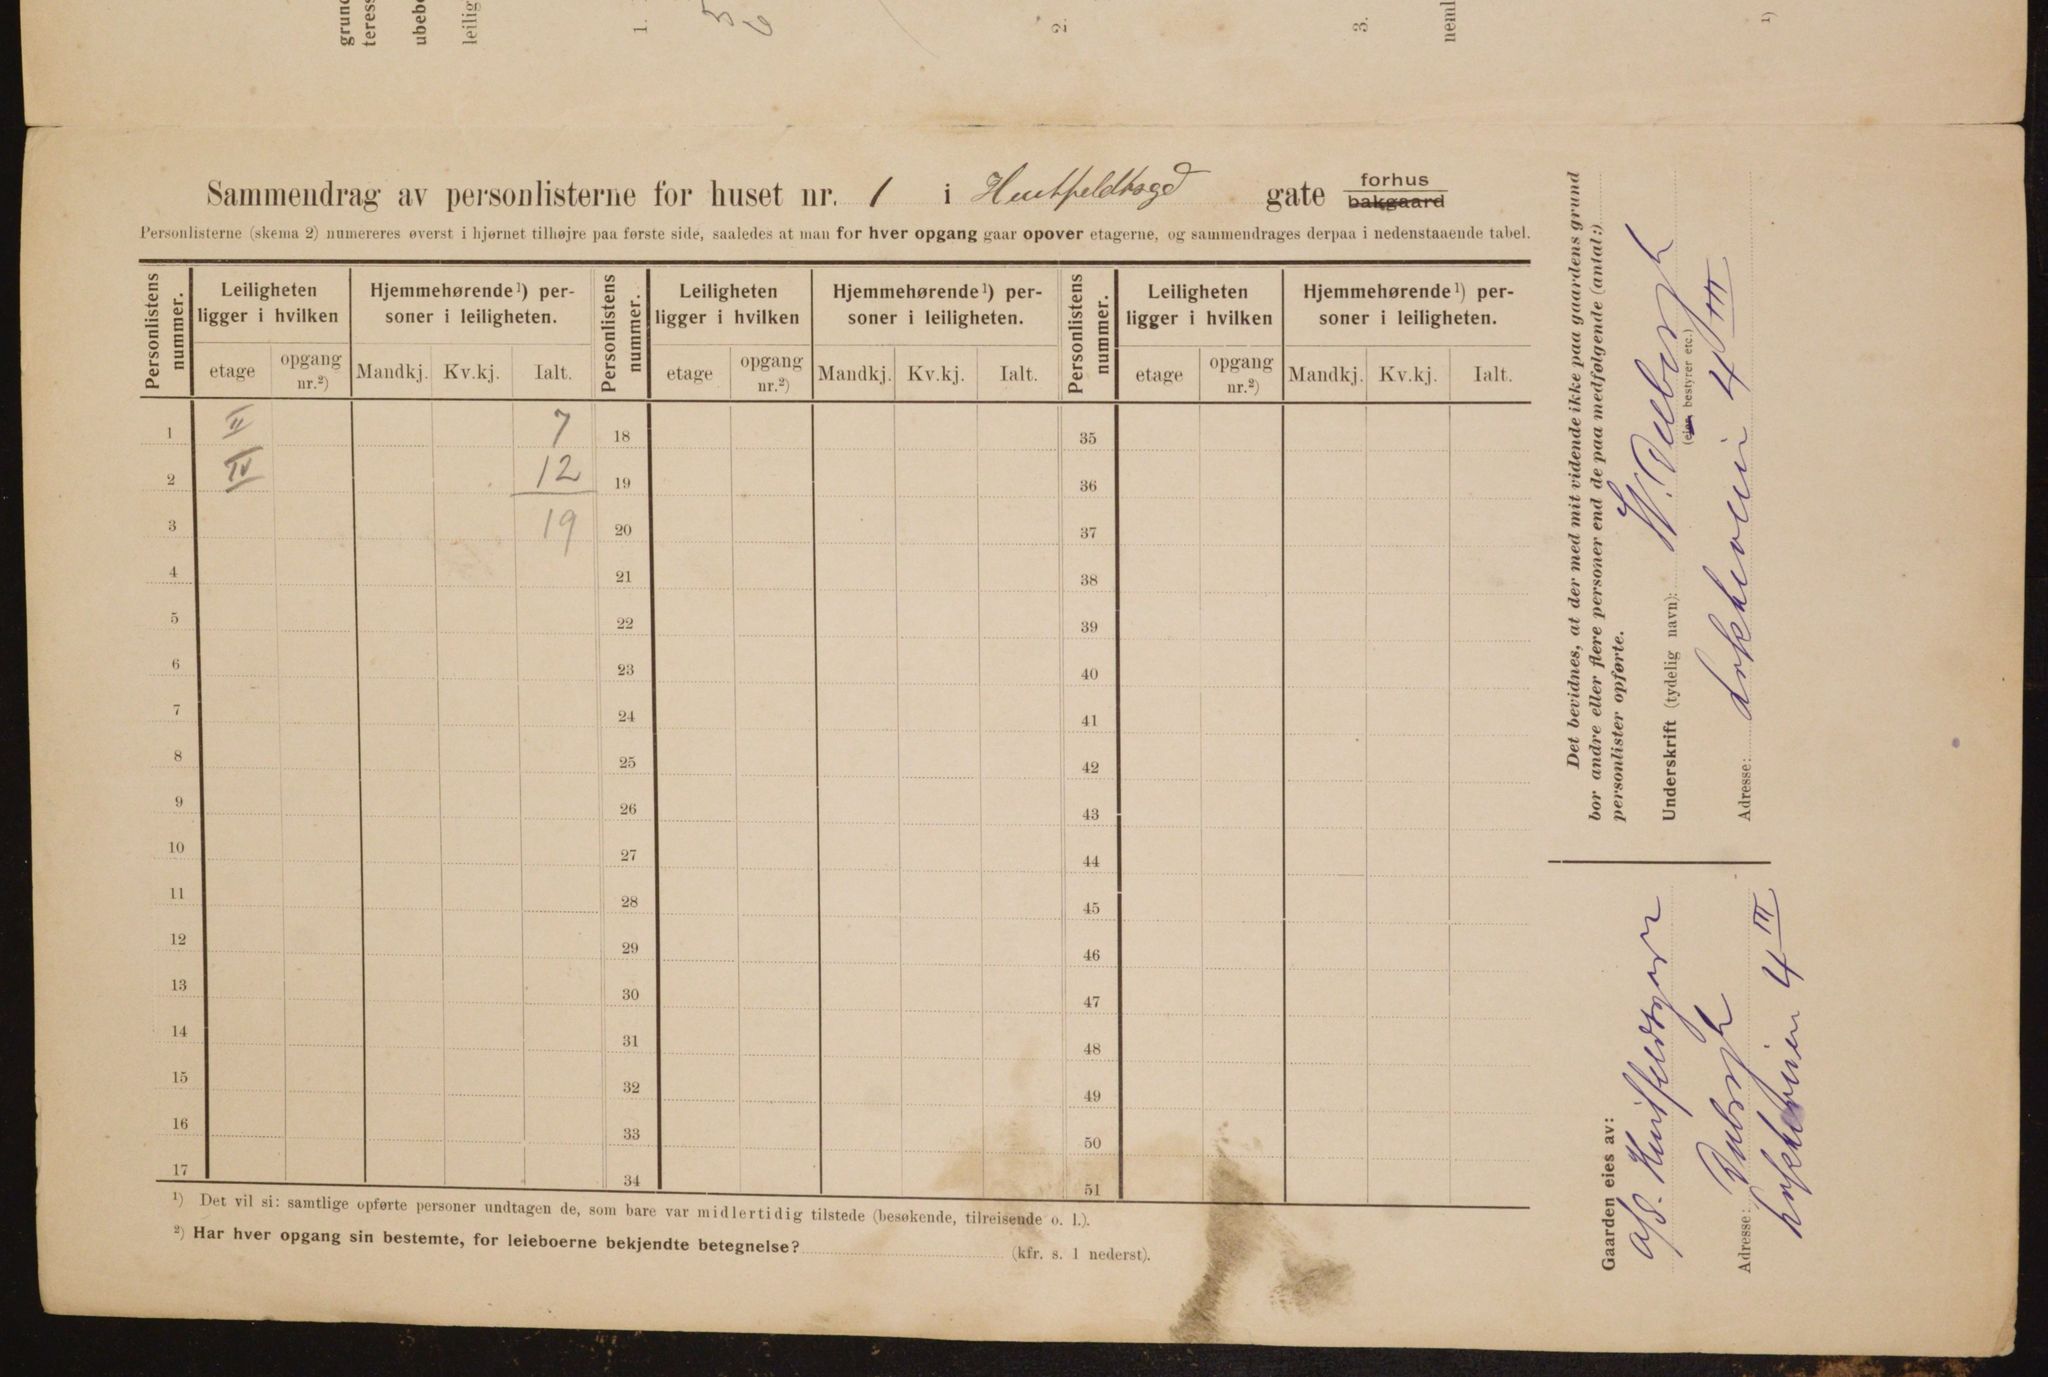 grund
teress
ubebo
leilig
1.
2.
3.
neml
1)
Sammendrag av personlisterne for huset nr. 1 i Huitfeldtsgd gate forhus bakgaard
Personlisterne (skema 2) numereres øverst i hjørnet tilhøjre paa første side, saaledes at man for hver opgang gaar opover etagerne, og sammendrages derpaa i nedenstaaende tabel.
Personlistens nummer. Leiligheten ligger i hvilken Hjemmehørende 1) personer i leiligheten. Personlistens nummer. Leiligheten ligger i hvilken Hjemmehørende 1) personer i leiligheten. Personlistens nummer. Leiligheten ligger i hvilken Hjemmehørende 1) personer i leiligheten.
etage opgang nr.2) Mandkj. Kv.kj. Ialt. etage opgang nr.2) Mandkj. Kv.kj. Ialt. etage opgang nr.2) Mandkj. Kv.kj. Ialt.
1 II 7 18 35
2 IV 12 19 36
3 19 20 37
4 21 38
5 22 39
6 23 40
7 24 41
8 25 42
9 26 43
10 27 44
11 28 45
12 29 46
13 30 47
14 31 48
15 32 49
16 33 50
17 34 51
1) Det vil si: samtlige opførte personer undtagen de, som bare var midlertidig tilstede (besøkende, tilreisende o. l.).
2) Har hver opgang sin bestemte, for leieboerne bekjendte betegnelse? (kfr. s. 1 nederst).
Det bevidnes, at der med mit vidende ikke paa gaardens grund
bor andre eller flere personer end de paa medfølgende (antal:)
personlister opførte.
Underskrift (tydelig navn):
(eier bestyrer etc.)
Adresse: 4 III
Gaarden eies av:
A/S. Huitfeldtsgaten
Adresse:
4 III